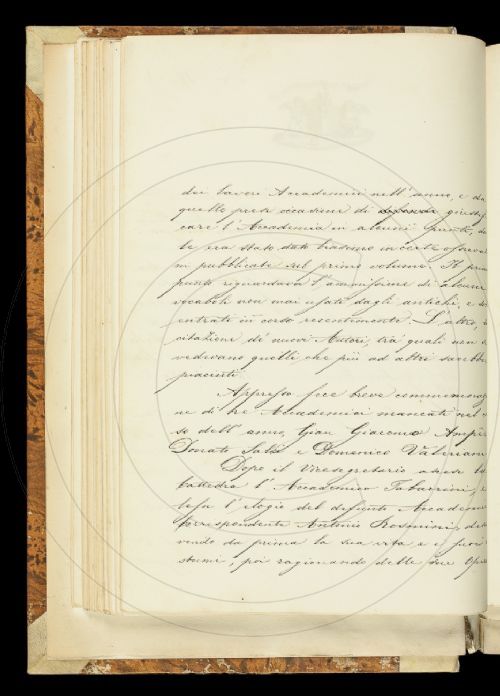 dei lavori Accademici nell'anno, e da
quello prese occasione di difender giustifi
care l'Accademia in alcuni punti, da
le era stato dato biasimo in certe osserva
ni pubblicate sul primo volume. Il primo
punto riguardava l'ammissione di alcuni
vocaboli non mai usati dagli antichi, e
entrati in corso recentemente. L'altro
citazione di nuovi Autori, tra' quali non
vedevano quelli che più ad altri sarebbe
piaciuti.
Appresso fece breve commemorazio
ne di tre Accademici mancati nel
so dell'anno, Gian Giacomo Ampère
Donato Salvi e Domenico Valeriani
Dopo il Vicesegretario ascese la
Cattedra l'Accademico Tabarrini, e
lesse l'elogio del defunto Accademico
Corrispondente Antonio Rosmini, de
vendo da prima la sua vita e i suoi
stumi, poi ragionando delle sue Opere